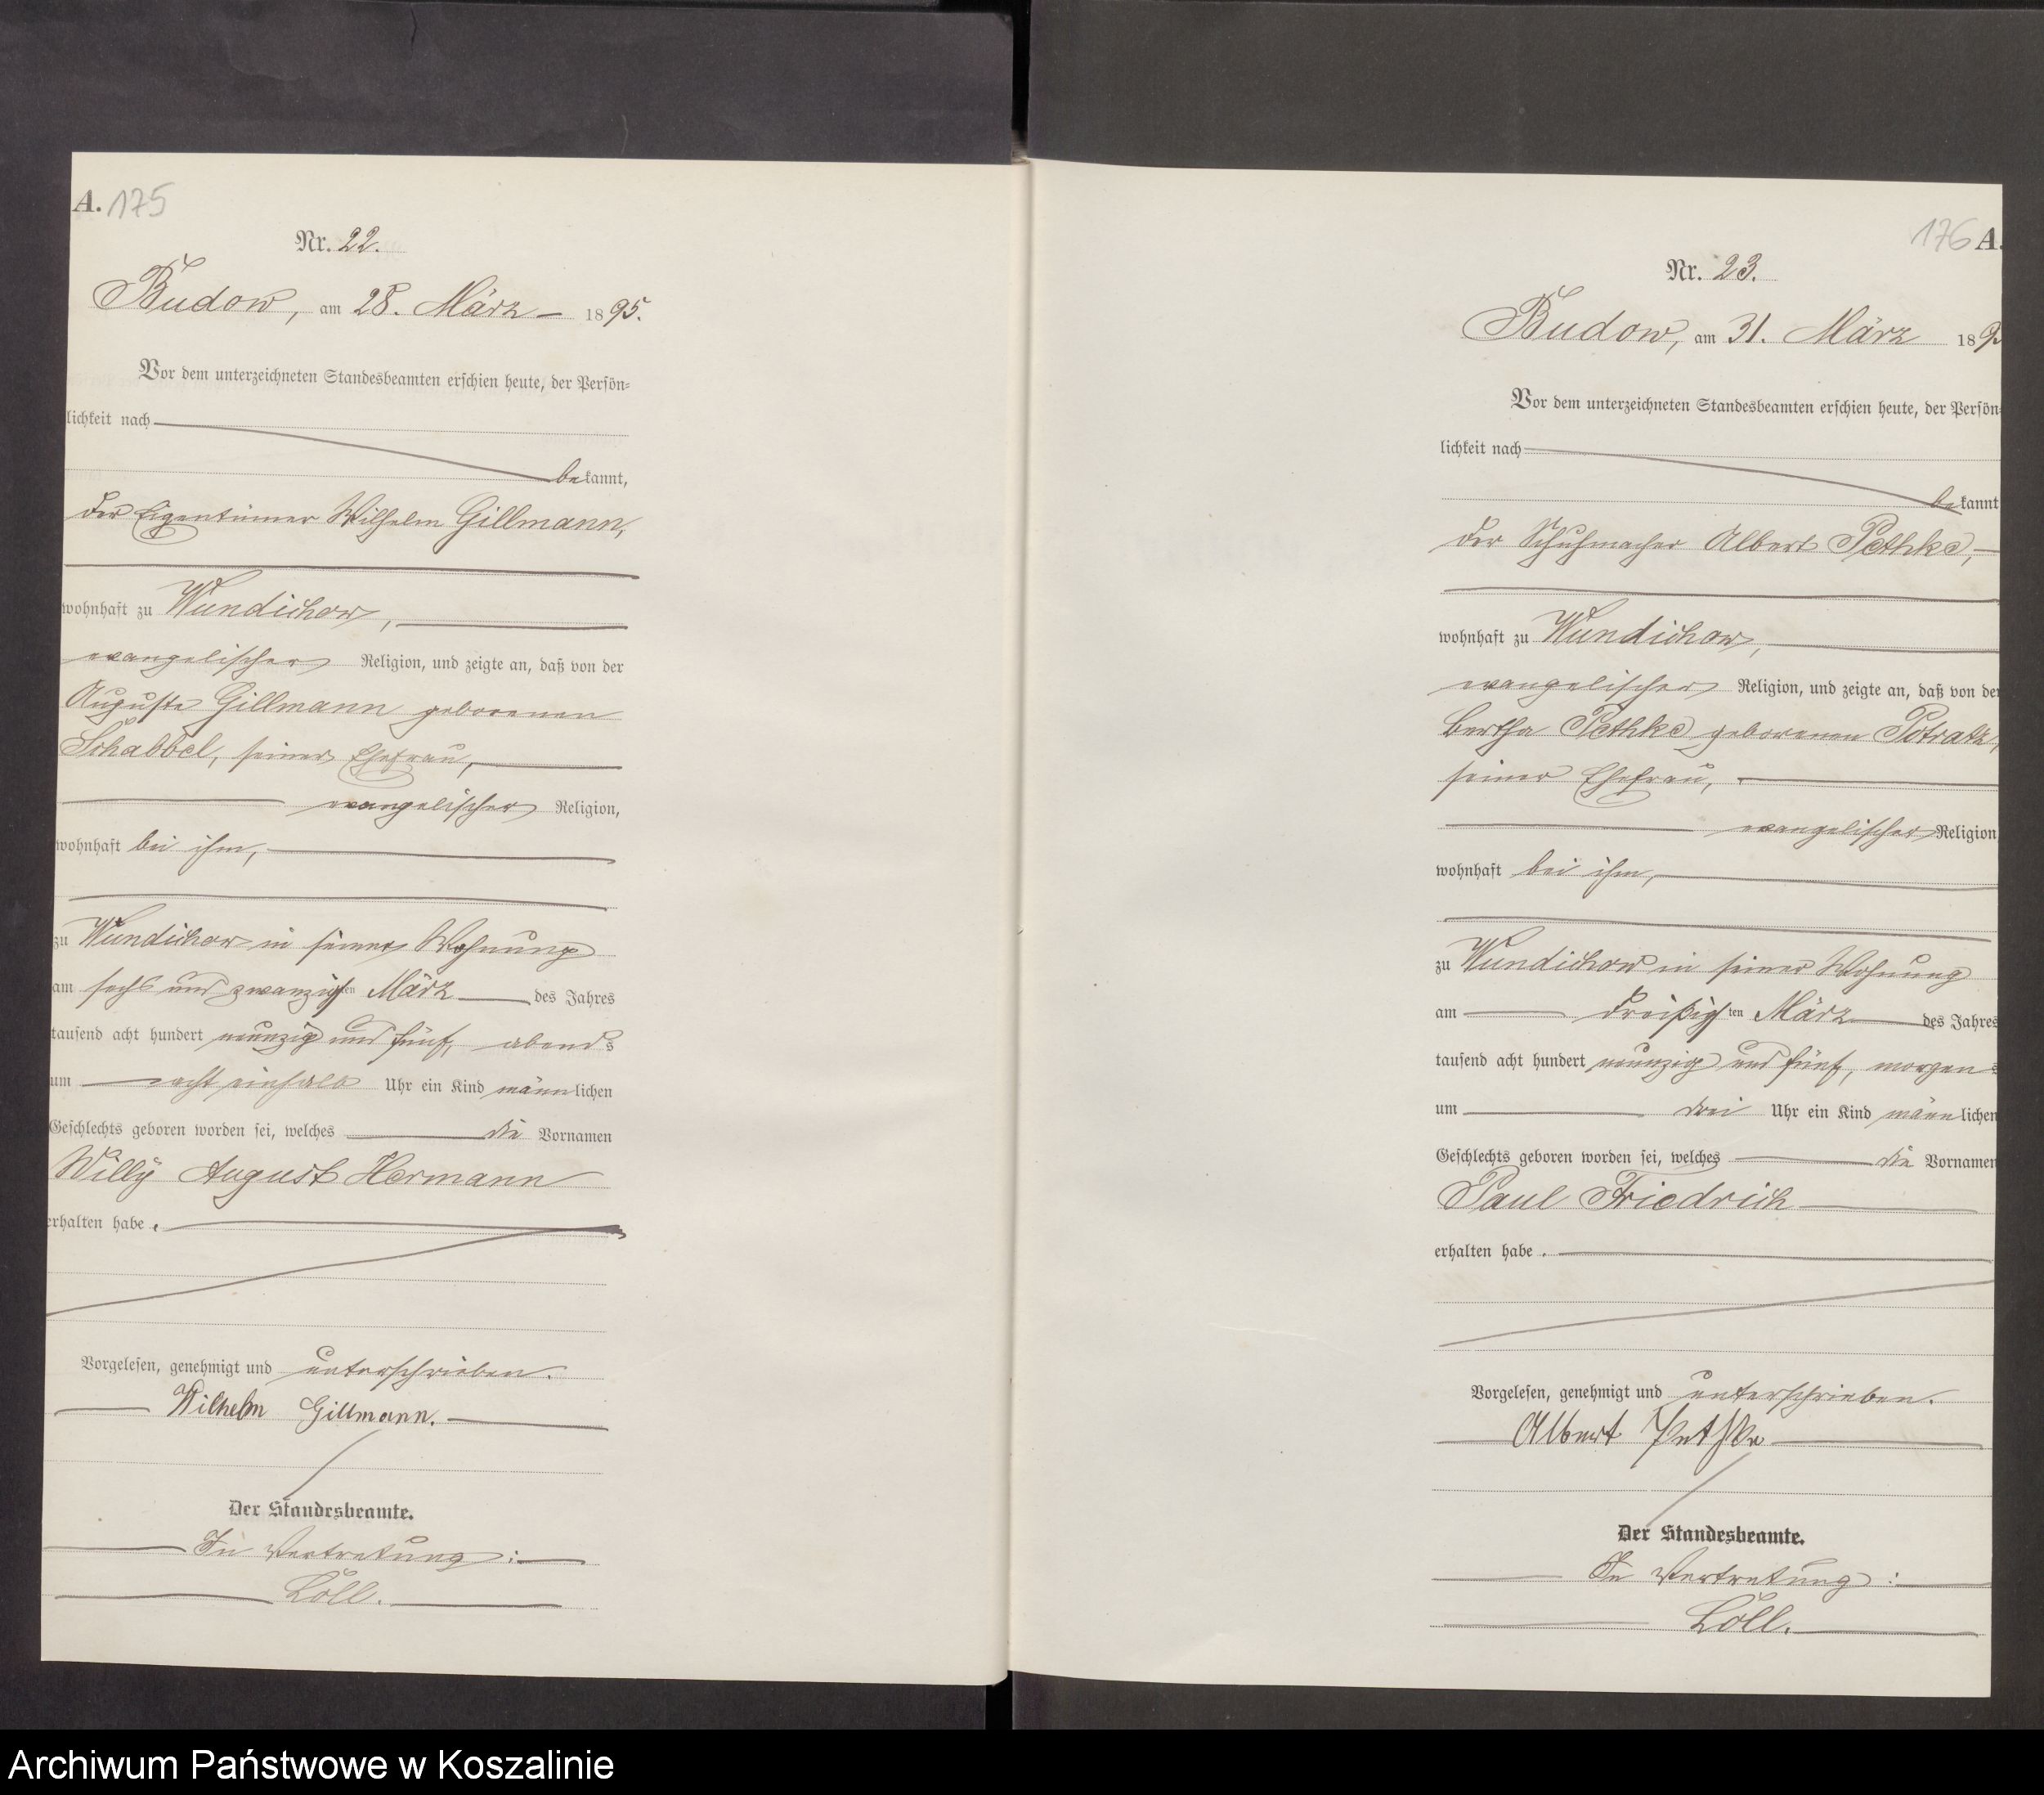 A. 175
Nr. 22.
Budow, am 28. März 1895.
Vor dem unterzeichneten Standesbeamten erschien heute, der Persön-
lichkeit nach
bekannt,
der Eigentümer Wilhelm Gillmann,
wohnhaft zu Wundichow,
evangelischer Religion, und zeigte an, daß von der
Auguste Gillmann geborenen
Schabbel, seiner Ehefrau,
evangelischer Religion,
wohnhaft bei ihm,
zu Wundichow in seiner Wohnung
am sechs und zwanzigsten März des Jahres
tausend acht hundert neunzig und fünf, abends
um acht einhalb Uhr ein Kind männlichen
Geschlechts geboren worden sei, welches die Vornamen
Willy August Hermann
erhalten habe.
Vorgelesen, genehmigt und unterschrieben.
Wilhelm Gillmann.
Der Standesbeamte.
In Vertretung:
Löll.
176 A.
Nr. 23.
Budow, am 31. März 189
Vor dem unterzeichneten Standesbeamten erschien heute, der Persön-
lichkeit nach
bekannt
der Schuhmacher Albert Pethke,
wohnhaft zu Wundichow,
evangelischer Religion, und zeigte an, daß von der
Bertha Pethke geborenen Potratz,
seiner Ehefrau,
evangelischer Religion
wohnhaft bei ihm,
zu Wundichow in seiner Wohnung
am dreißigsten März des Jahres
tausend acht hundert neunzig und fünf, morgens
um drei Uhr ein Kind männlichen
Geschlechts geboren worden sei, welches die Vornamen
Paul Friedrich
erhalten habe.
Vorgelesen, genehmigt und unterschrieben.
Albert Pethke
Der Standesbeamte.
In Vertretung:
Löll.
Archiwum Państwowe w Koszalinie